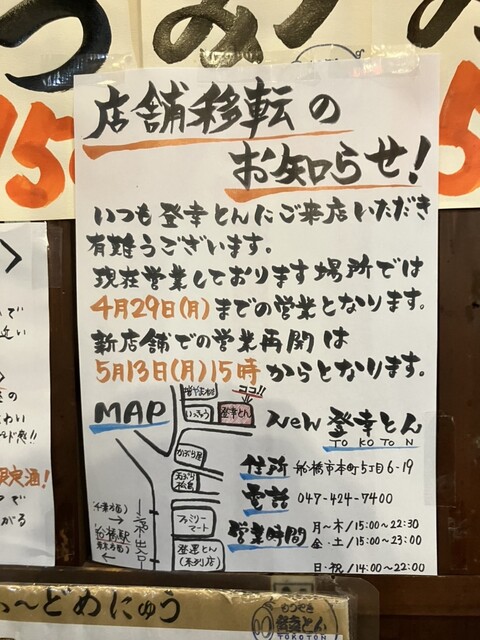 店舗移転の
お知らせ!
いつも登幸とんにご来店いただき
有難うございます。
現在営業しております場所では
4月29日(月)までの営業となります。
新店舗での営業再開は
5月13日(月)15時からとなります。
MAP
ココ!!
いっきゅう
登幸とん
かぶり屋
ファミリーマート
登運とん
(系列店)
船橋駅
北口
New 登幸とん
TOKOTON
住所 船橋市本町5丁目6-19
電話 047-424-7400
営業時間 月~木/15:00~22:30
金・土/15:00~23:00
日・祝/14:00~22:00
限定酒!
がる
~どめにゅう
登幸とん
TOKOTON